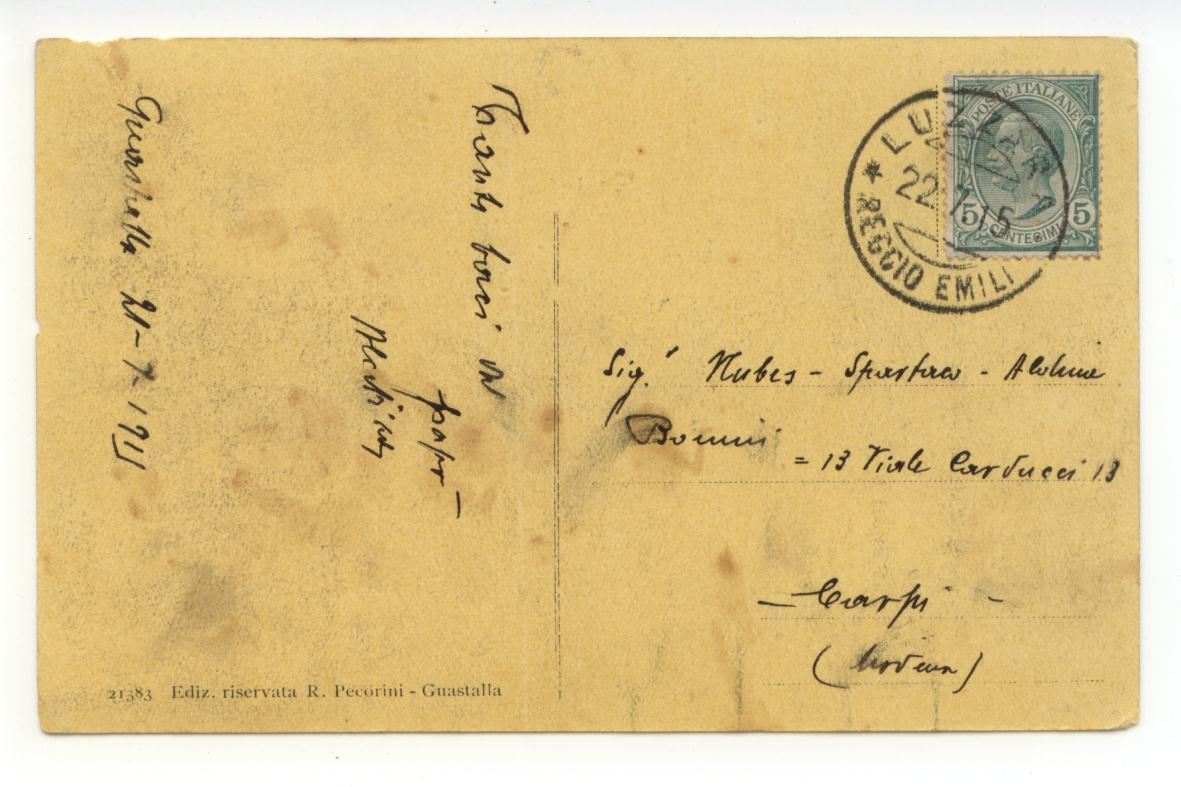 Guastalla 21-7-
Tanti baci
papà
POSTE ITALIANE
5 CENTESIMI 5
LUZZARA
22.7.15
REGGIO EMILI
Nubes - Spartaco -
= 13 Viale Carducci 13
- Carpi -
(Modena)
21383 Ediz. riservata R. Pecorini - Guastalla